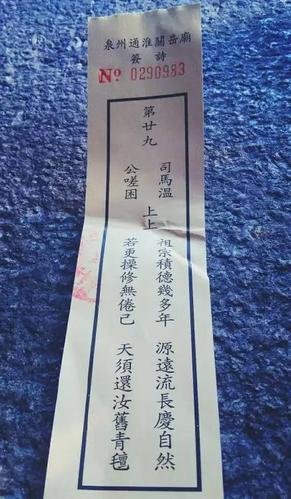 泉州通淮關岳廟
簽詩
No 0290983
第廿九
司馬溫
公嗟困
上上
祖宗積德幾多年 源遠流長慶自然
若更操修無倦己 天須還汝舊青氊